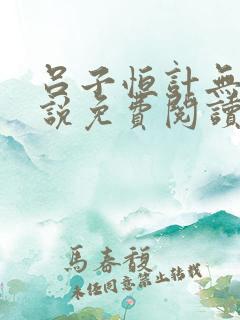 呂子恒計無
說免費閱讀
馬春馥
未經同意禁止轉載